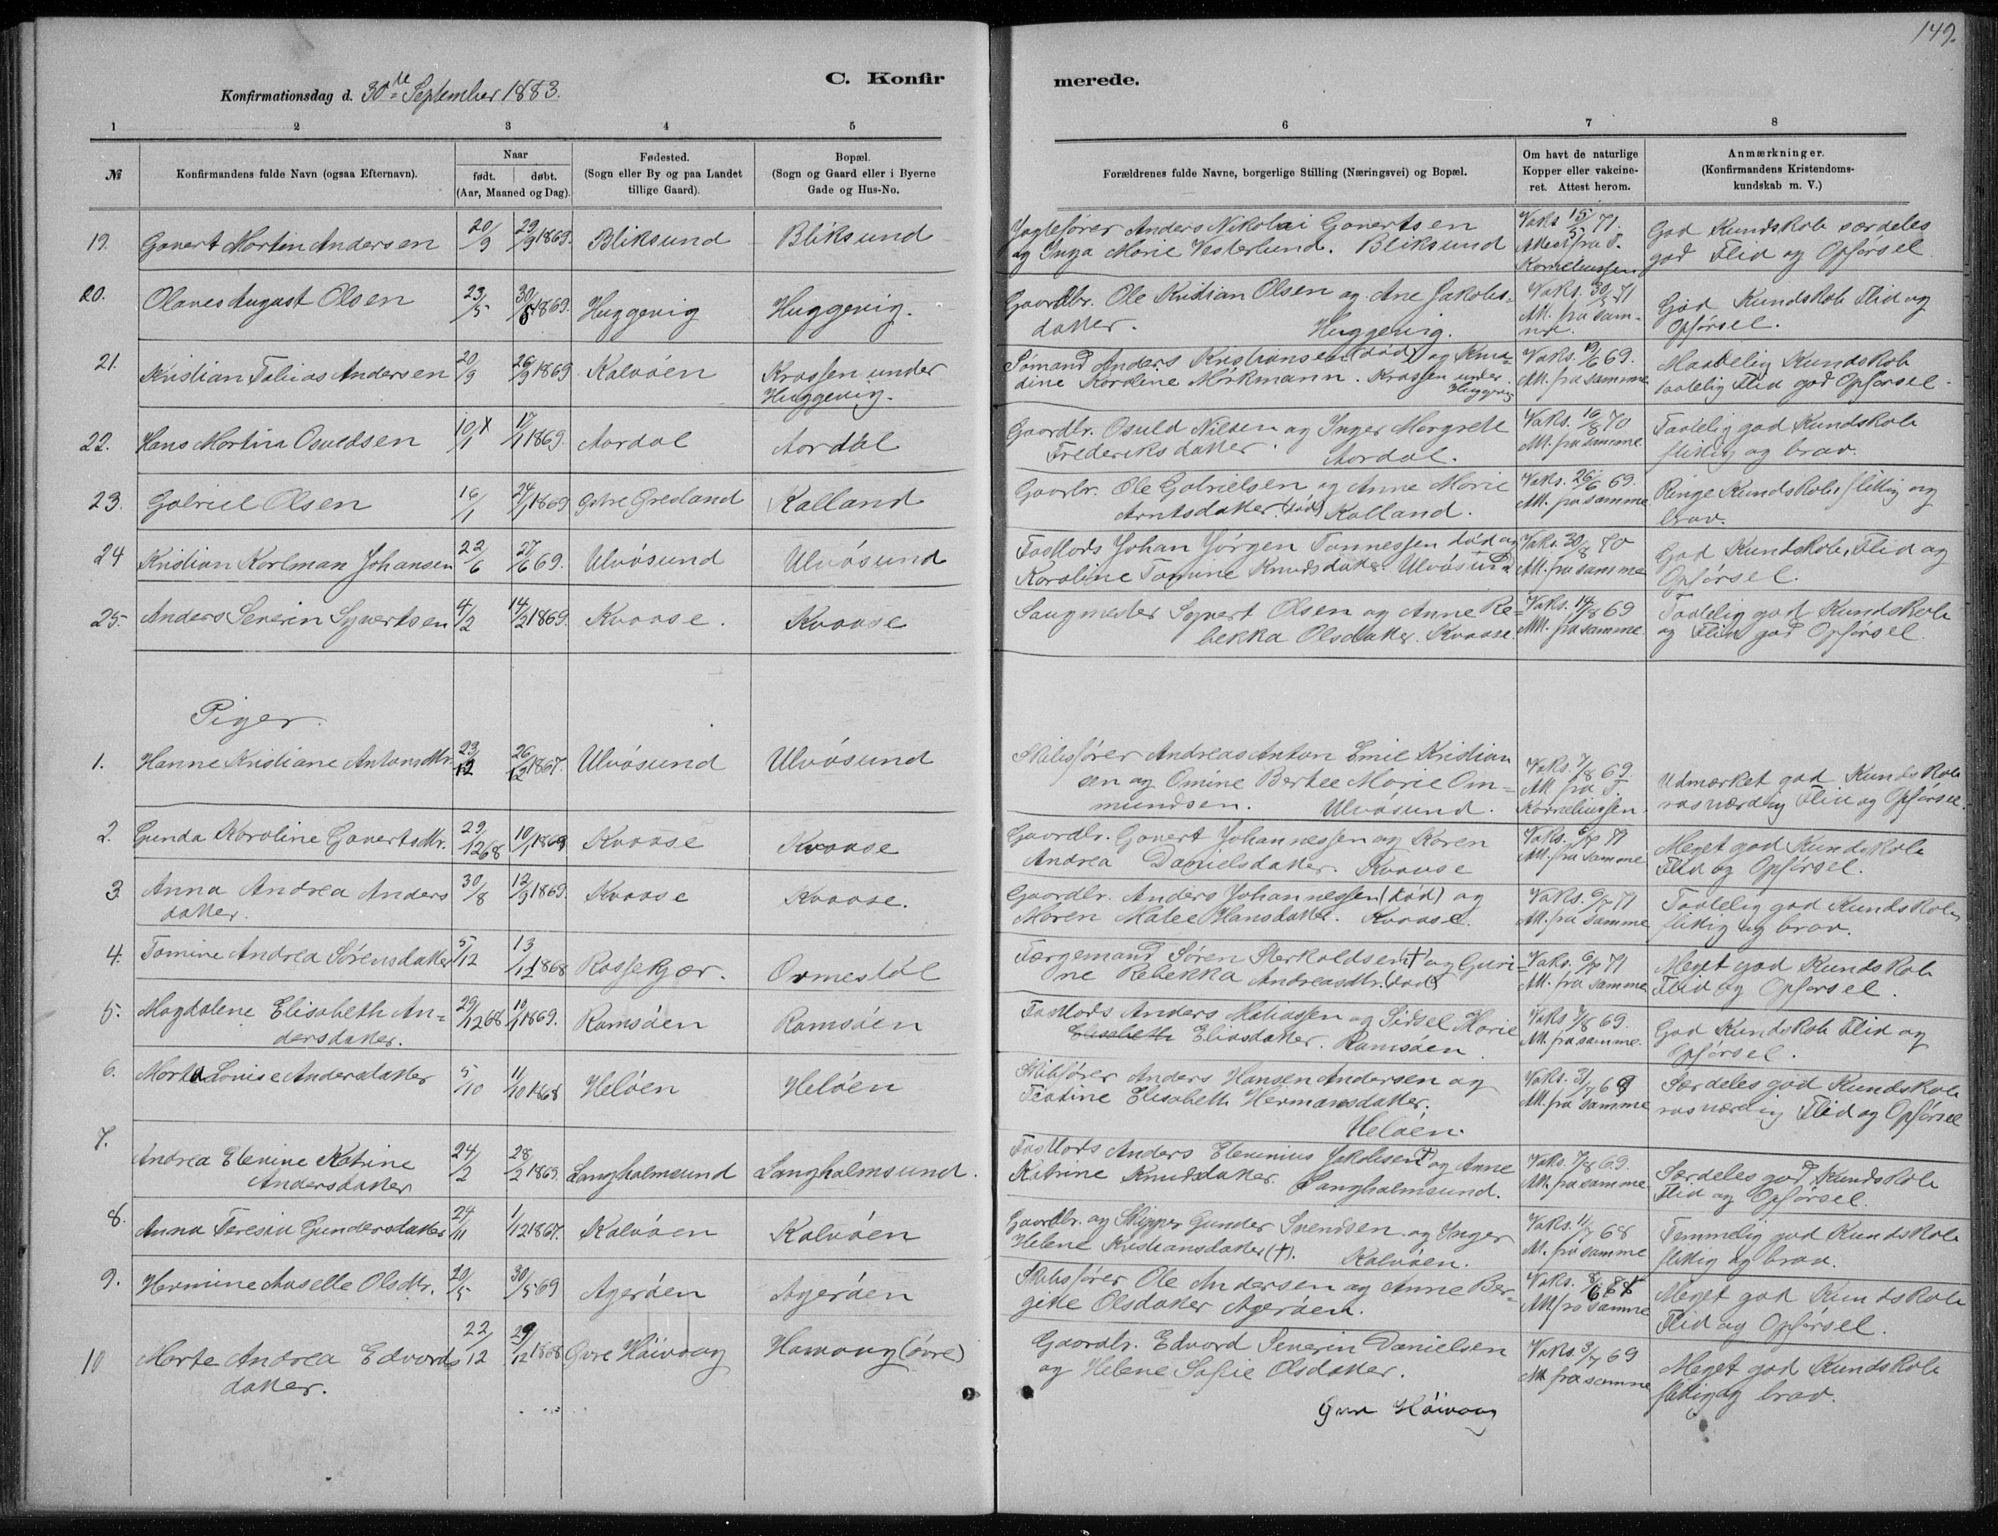 149.
C. Konfirmerede.
Konfirmationsdag d. 30te September 1883.
1 2 3 4 5 6 7 8
№
Konfirmandens fulde Navn (ogsaa Efternavn).
Naar
født. døbt.
(Aar, Maaned og Dag).
Fødested.
(Sogn eller By og paa Landet
tillige Gaard).
Bopæl.
(Sogn og Gaard eller i Byerne
Gade og Hus-No.
Forældrenes fulde Navne, borgerlige Stilling (Næringsvei) og Bopæl.
Om havt de naturlige
Kopper eller vakcine-
ret. Attest herom.
Anmærkninger.
(Konfirmandens Kristendoms-
kundskab m. V.)
19. Govert Martin Andersen 20/9 29/9 1869. Bliksund Bliksund Anders Nikolai Govertsen Vaks 15/5 71 God Kundskab særdeles
og Inga Marie Vesterlund. Bliksund Attest fra T. Korneliussen god Flid og Opførsel.
20. Olaves August Olsen 23/5 30/5 1869. Huggevig Huggevig. Gaardbr. Ole Kristian Olsen og Ane Jakobs- Vaks. 30/5 71 God Kundskab Flid og
datter. Huggevig. Att. fra sam- Opførsel.
me.
21. Kristian Tobias Andersen 20/9 26/9 1869 Kalvøen Krossen under Sømand Anders Kristiansen (død) og Knu- Vaks. 19/6 69. Maadelig Kundskab
Huggevig. dine Karoline Mørkmann. Krossen under Huggevig Att. fra samme taalelig Flid god Opførsel.
22. Hans Martin Osuldsen 10/1 17/1 1869. Aardal Aardal Gaardbr. Osuld Nilsen og Inger Margrete Vaks. 16/8 70 Taalelig god Kundskab
Frederiksdatter. Aardal. Att. fra samme. flittig og brav.
23. Gabriel Olsen 16/1 24/1 1869 Østre Græsland Kalland Gaarbr. Ole Gabrielsen og Anne Marie Vaks. 26/6 69. Ringe Kundskab, flittig og
Arntsdatter. (død) Kalland. Att. fra samme brav.
24 Kristian Karlman Johansen 22/6 27/6 69. Ulvøsund Ulvøsund Johan Jørgen Tønnessen død og Vaks. 30/8 70 God Kundskab, Flid og
Karoline Tomine Knudsdatter. Ulvøsund Att. fra samme Opførsel.
25. Anders Severin Syvertsen 4/2 14/2 1869. Kvaase. Kvaase Saugmester Syvert Olsen og Anne Re- Vaks. 14/8 69 Taalelig god Kundskab
bekka Olsdatter. Kvaase. Att. fra samme. og Flid god Opførsel.
Piger.
1. Hanne Kristiane Antonsdtr. 23/12 26/12 1867. Ulvøsund Ulvøsund Skibsfører Andreas Anton Emil Kristian Vaks. 7/8 69. Udmærket god Kundskab
sen og Omine Bertee Marie Om- Att. fra T. rosværdig Flid og Opførsel.
mundsen. Ulvøsund. Korneliussen.
2. Gunda Karoline Govertsdtr. 29/12 68 10/1 1869 Kvaase Kvaase Gaardbr. Govert Johannessen og Karen Vaks. 6/7 71 Meget god Kundskab
Andrea Danielsdatter. Kvaase Att. fra samme Flid og Opførsel.
3. Anna Andrea Anders 30/8 12/9 1869. Kvaase Kvaase. Gaardbr. Anders Johannessen (død) og Vaks. 6/7 71 Taalelig god Kundskab,
datter. Maren Malee Hansdatter. Kvaase. Att. fra samme flittig og brav.
4. Tomine Andrea Sørensdatter 5/12 13/12 1868 Rossekjær. Ormestøl Færgemand Søren Sterkoldsen † og Guri- Vaks. 6/7 71 Meget god Kundskab
ne Rebekka Andreasdtr. (død) Att. fra samme Flid og Opførsel.
5. Magdalene Elisabeth An- 29/12 68 10/1 1869. Ramsøen Ramsøen Anders Matiassen og Sidsel Marie Vaks. 7/8 69. God Kundskab Flid og
dersdatter. Elisabeth Eliasdatter. Ramsøen Att. fra samme. Opførsel.
6. Marta Louise Andersdatter 5/10 11/10 1868 Heløen Heløen Skibsfører Anders Hansen Andersen og Vaks. 31/7 69 Særdeles god Kundskab
Elisabeth Hermansdatter. Att. fra samme rosværdig Flid og Opførsel
Heløen.
7. Andrea Elenine Katrine 24/2 28/2 1869. Langholmsund Langholmsund. Anders Elenius Jakobsen og Anne Vaks. 7/8 69. Særdeles god Kundskab
Andersdatter Katrine Knudsdatter. Langholmsund. Att. fra samme Flid og Opførsel.
8. Anna Teresia Gundersdatter 24/11 1/12 1867. Kalvøen Kalvøen Gaardbr. og Skipper Gunder Svendsen og Inger Vaks. 11/7 68 Temmelig god Kundskab
Helene Kristiansdatter (†). Kalvøen. Att. fra samme flittig og brav.
9. Hermine Aaselle Olsdtr. 20/5 30/5 69 Agerøen Agerøen Skibsfører Ole Andersen og Anne Ber- Vaks. Meget god Kundskab
gitte Olsdatter Agerøen. Att. fra samme Flid og Opførsel.
10 Marte Andrea Edvards 22/12 29/12 1868 Øvre Høivaag Høivaag (øvre) Gaardbr. Edvard Severin Danielsen Vaks. 3/7 69 Meget god Kundskab
datter. og Helene Sofie Olsdatter. Att fra samme flittig og brav.
Øvre Høivaag